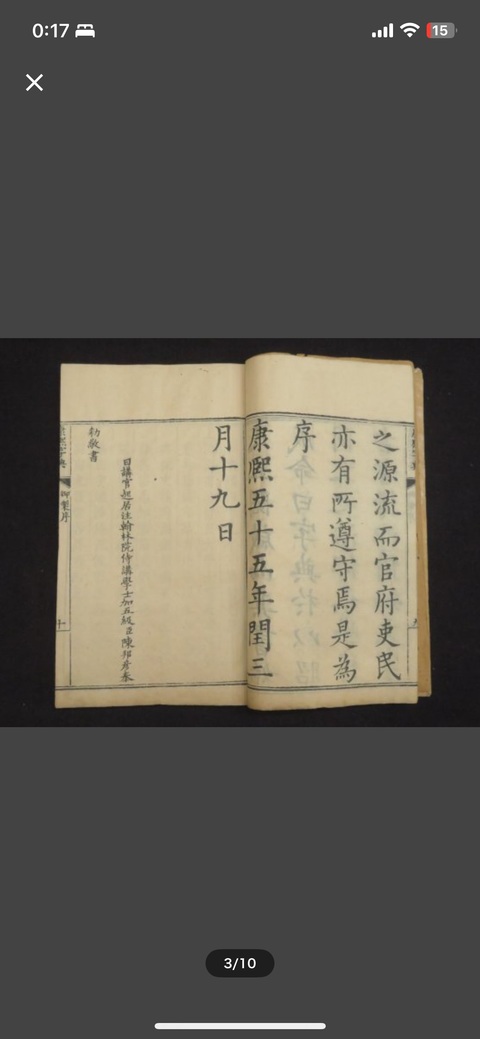 0:17
15
之源流而官府吏民
亦有所遵守焉是為
序
康熙五十五年閏三
月十九日
日講官起居注翰林院侍講學士加五級臣陳邦彥奉
勑敬書
御製序
十
3/10